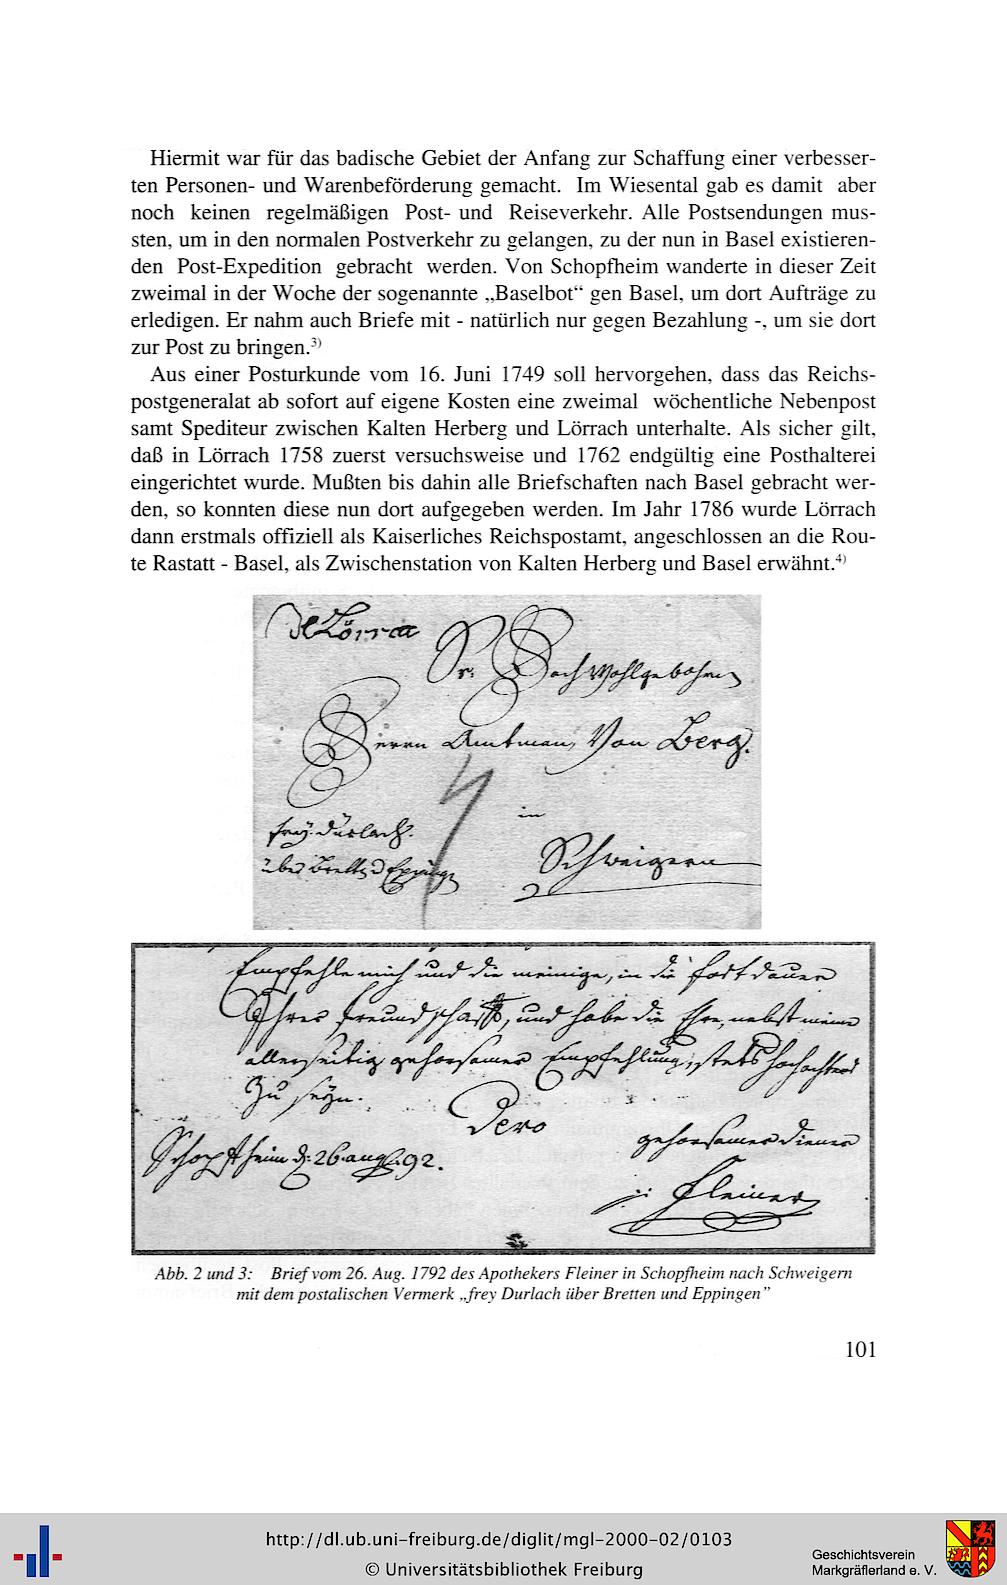 Hiermit war für das badische Gebiet der Anfang zur Schaffung einer verbesser-
ten Personen- und Warenbeförderung gemacht. Im Wiesental gab es damit aber
noch keinen regelmäßigen Post- und Reiseverkehr. Alle Postsendungen mus-
sten, um in den normalen Postverkehr zu gelangen, zu der nun in Basel existieren-
den Post-Expedition gebracht werden. Von Schopfheim wanderte in dieser Zeit
zweimal in der Woche der sogenannte „Baselbot“ gen Basel, um dort Aufträge zu
erledigen. Er nahm auch Briefe mit - natürlich nur gegen Bezahlung -, um sie dort
zur Post zu bringen.3)
Aus einer Posturkunde vom 16. Juni 1749 soll hervorgehen, dass das Reichs-
postgeneralat ab sofort auf eigene Kosten eine zweimal wöchentliche Nebenpost
samt Spediteur zwischen Kalten Herberg und Lörrach unterhalte. Als sicher gilt,
daß in Lörrach 1758 zuerst versuchsweise und 1762 endgültig eine Posthalterei
eingerichtet wurde. Mußten bis dahin alle Briefschaften nach Basel gebracht wer-
den, so konnten diese nun dort aufgegeben werden. Im Jahr 1786 wurde Lörrach
dann erstmals offiziell als Kaiserliches Reichspostamt, angeschlossen an die Rou-
te Rastatt - Basel, als Zwischenstation von Kalten Herberg und Basel erwähnt.4)
de Lörrca
Sr. Hochwohlgebohrn
Herrn Amtman, Von Berg.
4
in
frey. Durlach.
über Brettn Epping
Schweigern
Empfehle mich und die meinige, in die fortdauer
Ihrer freundschafft, und habe die Ehre, nebst meine
allerseitig gehorsamer Empfehlung, stets hochachtend
Zu seyn.
Dero
Schopfheim d: 26. aug. 92.
gehorsamer diener
Fleiner
Abb. 2 und 3: Brief vom 26. Aug. 1792 des Apothekers Fleiner in Schopfheim nach Schweigern
mit dem postalischen Vermerk „frey Durlach über Bretten und Eppingen”
101
http://dl.ub.uni-freiburg.de/diglit/mgl-2000-02/0103
© Universitätsbibliothek Freiburg
Geschichtsverein
Markgräflerland e. V.